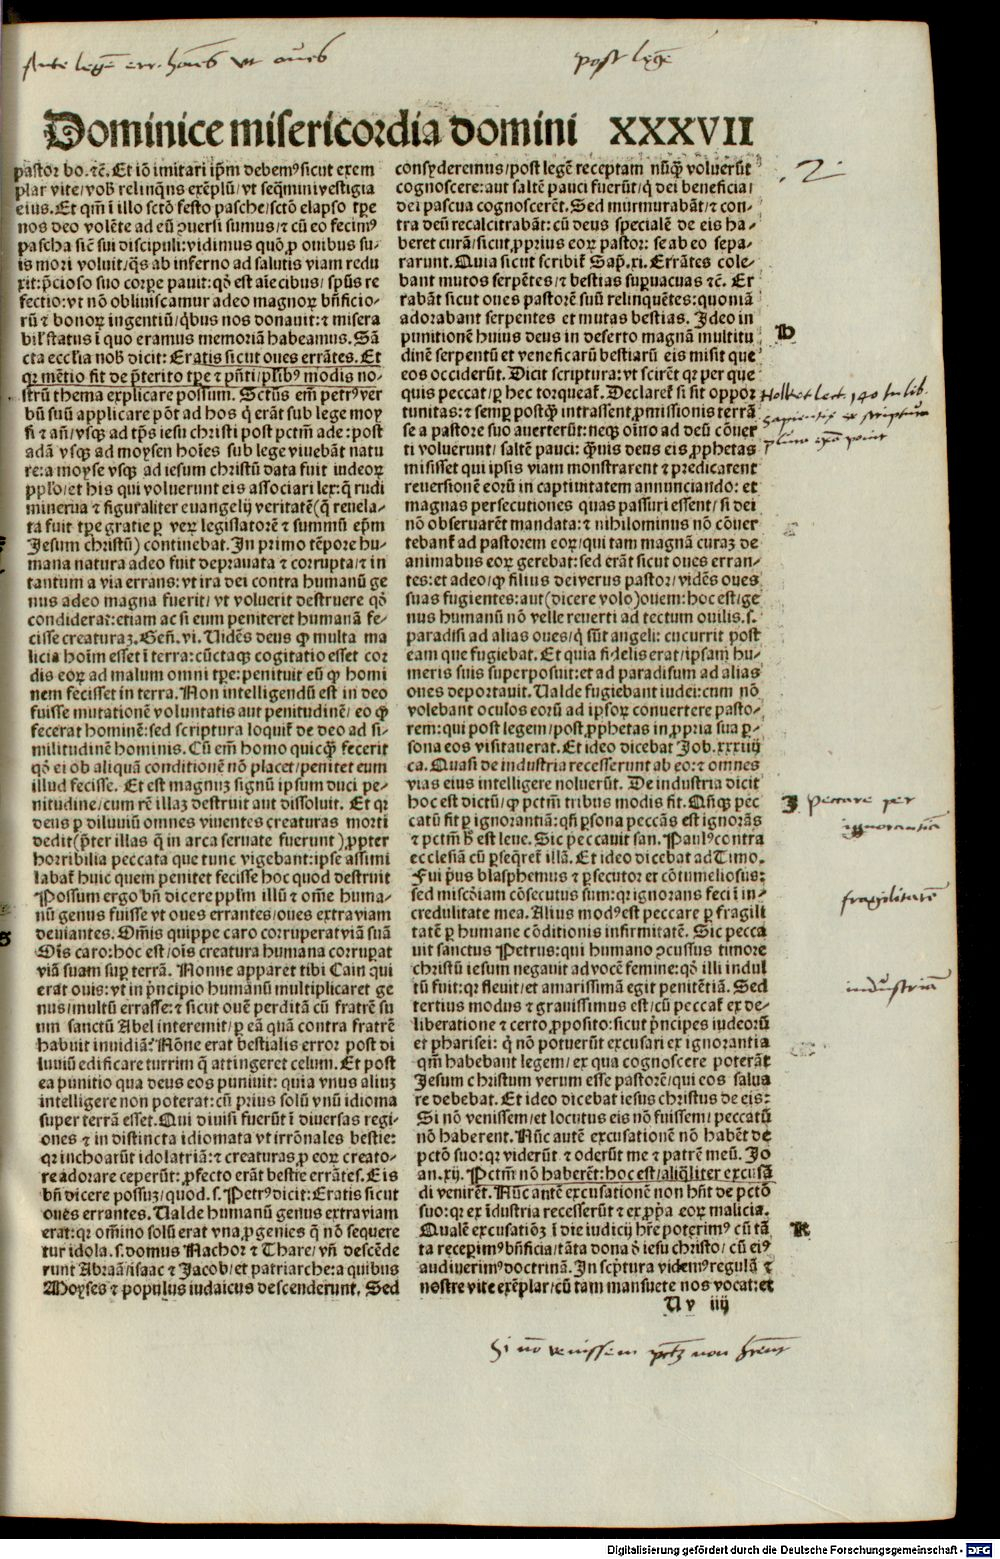 Ante legē err. hoīes vt oues
post legē
Dominice misericordia domini XXXVII
pastor bo.ꝛē. Et iō imitari ip̄m debemꝰ sicut exem
plar vite/vob̄ relinqͥns exēplū/vt seqͥmini vestigia
eius. Et qm̄ ī illo sctō festo pasche/sctō elapso tꝑe
nos deo volēte ad eū ꝯuersi sumus/⁊ cū eo fecimꝰ
pascha sic̄ sui discipuli: vidimus quō ꝓ ouibus su⸗
is mori voluit/qͥs ab inferno ad salutis viam redu
xit: p̄cioso suo corꝑe pauit: qd̄ est aīe cibus/ sp̄us re
fectio: vt nō obliuiscamur adeo magnoꝝ bn̄ficio⸗
rū ⁊ bonoꝝ ingentiū/qͥbus nos donauit: ⁊ misera
bil̓ status ī quo eramus memoriā habeamus. Sā
cta ecclīa nob̄ dicit: Eratis sicut oues errātes. Et
qꝛ mētio fit de p̄terito tꝑe ⁊ pn̄ti/pl̓ibꝰ modis no⸗
strū thema explicare possum. Sctūs em̄ petrꝰ ver
bū suū applicare pōt ad hos q̄ erāt sub lege moy
si ⁊ an̄/vsqꝫ ad tp̄s iesu christi post pctm̄ ade: post
adā vsqꝫ ad moysen hoīes sub lege viuebāt natu
re: a moyse vsqꝫ ad iesum christū data fuit iudeoꝝ
pp̓lo/et his qui voluerunt eis associari lex: q̄ rudi
minerua ⁊ figuraliter euangelij veritatē (q̄ reuela⸗
ta fuit tꝑe gratie ꝑ veꝝ legislatorē ⁊ summū ep̄m
Iesum christū) continebat. In primo tēpore hu⸗
mana natura adeo fuit deprauata ⁊ corrupta/⁊ in
tantum a via errans: vt ira dei contra humanū ge
nus adeo magna fuerit/ vt voluerit destruere qd̄
condiderat: etiam ac si eum peniteret humanā fe⸗
cisse creaturaꝫ. Gen̄. vi. Uidēs deus ꝙ multa ma
licia hoīm esset ī terra: cūctaqꝫ cogitatio esset cor
dis eoꝝ ad malum omni tꝑe: penituit eū ꝙ homi
nem fecisset in terra. Non intelligendū est in deo
fuisse mutationē voluntatis aut penitudinē/ eo ꝙ
fecerat hominē: sed scriptura loquit̓ de deo ad si⸗
militudinē hominis. Cū em̄ homo quicqͣꝫ fecerit
qd̄ ei ob aliquā conditionē nō placet/penitet eum
illud fecisse. Et est magnuꝫ signū ipsum duci pe⸗
nitudine/cum rē illaꝫ destruit aut dissoluit. Et qꝛ
deus ꝑ diluuiū omnes viuentes creaturas morti
dedit (p̄ter illas q̄ in arca seruate fuerunt) ꝓpter
horribilia peccata que tunc vigebant: ipse assimi
labat̓ huic quem penitet fecisse hoc quod destruit
Possum ergo bn̄ dicere pp̓lm illū ⁊ om̄e huma⸗
nū genus fuisse vt oues errantes/oues extra viam
deuiantes. Om̄is quippe caro corruperat viā suā
Oīs caro: hoc est/oīs creatura humana corrupat
viā suam suꝑ terrā. Nonne apparet tibi Cain qui
erat ouis: vt in p̄ncipio humanū multiplicaret ge
nus/multū errasse: ⁊ sicut ouē perditā cū fratrē su
um sanctū Abel interemit/ꝑ eā quā contra fratrē
habuit inuidiā? Nōne erat bestialis error post di
luuiū edificare turrim q̄ attingeret celum. Et post
ea punitio qua deus eos puniuit: quia vnus aliuꝫ
intelligere non poterat: cū prius solū vnū idioma
super terrā esset. Qui diuisi fuerūt ī diuersas regi⸗
ones ⁊ in distincta idiomata vt irrōnales bestie:
qꝛ inchoarūt idolatriā: ⁊ creaturas ꝓ eoꝝ creato⸗
re adorare ceperūt: ꝓfecto erāt bestie errātes. Eis
bn̄ dicere possuꝫ/quod .s. Petrꝰ dicit: Eratis sicut
oues errantes. Ualde humanū genus extra viam
erat: qꝛ om̄ino solū erat vna ꝓgenies q̄ nō sequere
tur idola .s. domus Nachor ⁊ Thare/vn̄ descēde
runt Abraā/isaac ⁊ Jacob/et patriarche: a quibus
Moyses ⁊ populus iudaicus descenderunt. Sed
consyderemus/post legē receptam nūqͣꝫ voluerūt
cognoscere: aut saltē pauci fuerūt/q̄ dei beneficia/
dei pascua cognoscerēt. Sed murmurabāt/⁊ con⸗
tra deū recalcitrabāt: cū deus specialē de eis ha⸗
beret curā/sicut ꝓprius eoꝝ pastor: se ab eo sepa⸗
rarunt. Quia sicut scribit̓ Sap̄. xi. Errātes cole⸗
bant mutos serpētes/⁊ bestias suꝑuacuas ⁊c̄. Er
rabāt sicut oues pastorē suū relinquētes: quoniā
adorabant serpentes et mutas bestias. Ideo in
punitionē huius deus in deserto magnā multitu
dinē serpentū et veneficarū bestiarū eis misit que
eos occiderūt. Dicit scriptura: vt scirēt qꝛ per que
quis peccat/ꝑ hec torqueat̓. Declaret̓ si sit oppor
tunitas: ⁊ semꝑ postqͣꝫ intrassent ꝓmissionis terrā
se a pastore suo auerterūt: neqꝫ oīno ad deū cōuer
ti voluerunt/ saltē pauci: qͣꝫuis deus eis ꝓphetas
misisset qui ipsis viam monstrarent ⁊ predicarent
reuersionē eorū in captiuitatem annunciando: et
magnas persecutiones quas passuri essent/ si dei
nō obseruarēt mandata: ⁊ nihilominus nō cōuer
tebant̓ ad pastorem eoꝝ/qui tam magnā curaꝫ de
animabus eoꝝ gerebat: sed erāt sicut oues erran⸗
tes: et adeo/ꝙ filius dei verus pastor/vidēs oues
suas fugientes: aut (dicere volo) ouem: hoc est/ge
nus humanū nō velle reuerti ad tectum ouilis .s.
paradisi ad alias oues/q̄ sūt angeli: cucurrit post
eam que fugiebat. Et quia fidelis erat/ipsam hu⸗
meris suis superposuit: et ad paradisum ad alias
oues deportauit. Ualde fugiebant iudei: cum nō
volebant oculos eorū ad ipsoꝝ conuertere pasto⸗
rem: qui post legem/post ꝓphetas in ꝓpria sua ꝑ⸗
sona eos visitauerat. Et ideo dicebat Job. xxxiiij
ca. Quasi de industria recesserunt ab eo: ⁊ omnes
vias eius intelligere noluerūt. De industria dicit
hoc est dictū/ꝙ pctm̄ tribus modis fit. Qn̄qꝫ pec
catū fit ꝑ ignorantiā: qn̄ ꝑsona peccās est ignorās
⁊ pctm̄ h̄ est leue. Sic peccauit san. Paulꝰ contra
ecclesiā cū ꝑseqͥret̓ illā. Et ideo dicebat ad Timo.
Fui p̓us blasphemus ⁊ ꝑsecutor et cōtumeliosus:
sed misc̄diam cōsecutus sum: qꝛ ignorans feci ī in⸗
credulitate mea. Alius modꝰ est peccare ꝑ fragili
tatē ꝑ humane cōditionis infirmitatē. Sic pecca
uit sanctus Petrus: qui humano ꝯcussus timore
christū iesum negauit ad vocē femine: qd̄ illi indul
tū fuit: qꝛ fleuit/et amarissimā egit penitētiā. Sed
tertius modus ⁊ grauissimus est/cū peccat̓ ex de⸗
liberatione ⁊ certo ꝓposito: sicut p̄ncipes iudeorū
et pharisei: q̄ nō potuerūt excusari ex ignorantia
qm̄ habebant legem/ ex qua cognoscere poterāt
Jesum christum verum esse pastorē/qui eos salua
re debebat. Et ideo dicebat iesus christus de eis:
Si nō venissem/et locutus eis nō fuissem/peccatū
nō haberent. Nūc autē excusationē nō habēt de
pctō suo: qꝛ viderūt ⁊ oderūt me ⁊ patrē meū. Jo
an. xv. Pctm̄ nō haberēt: hoc est/aliqͥliter excusā
di venirēt. Nūc autē excusationē non hn̄t de pctō
suo: qꝛ ex īdustria recesserūt ⁊ ex ꝓpria eoꝝ malicia.
Qualē excusationē ī die iudicij hr̄e poterimꝰ cū tā
ta recepimꝰ bn̄ficia/tāta dona d̓ iesu christo/ cū eiꝰ
audiuerimꝰ doctrinā. In scp̄tura videmꝰ regulā ⁊
nostre vite exēplar/cū tam mansuete nos vocat: et
U v iiij
2
D
Holket lect. 140 in lib.
sapientie
J
peccare per
ignorantiā
fragilitatē
industriā
K
Si nō venissem pctm̄ non hr̄ent
Digitalisierung gefördert durch die Deutsche Forschungsgemeinschaft - DFG